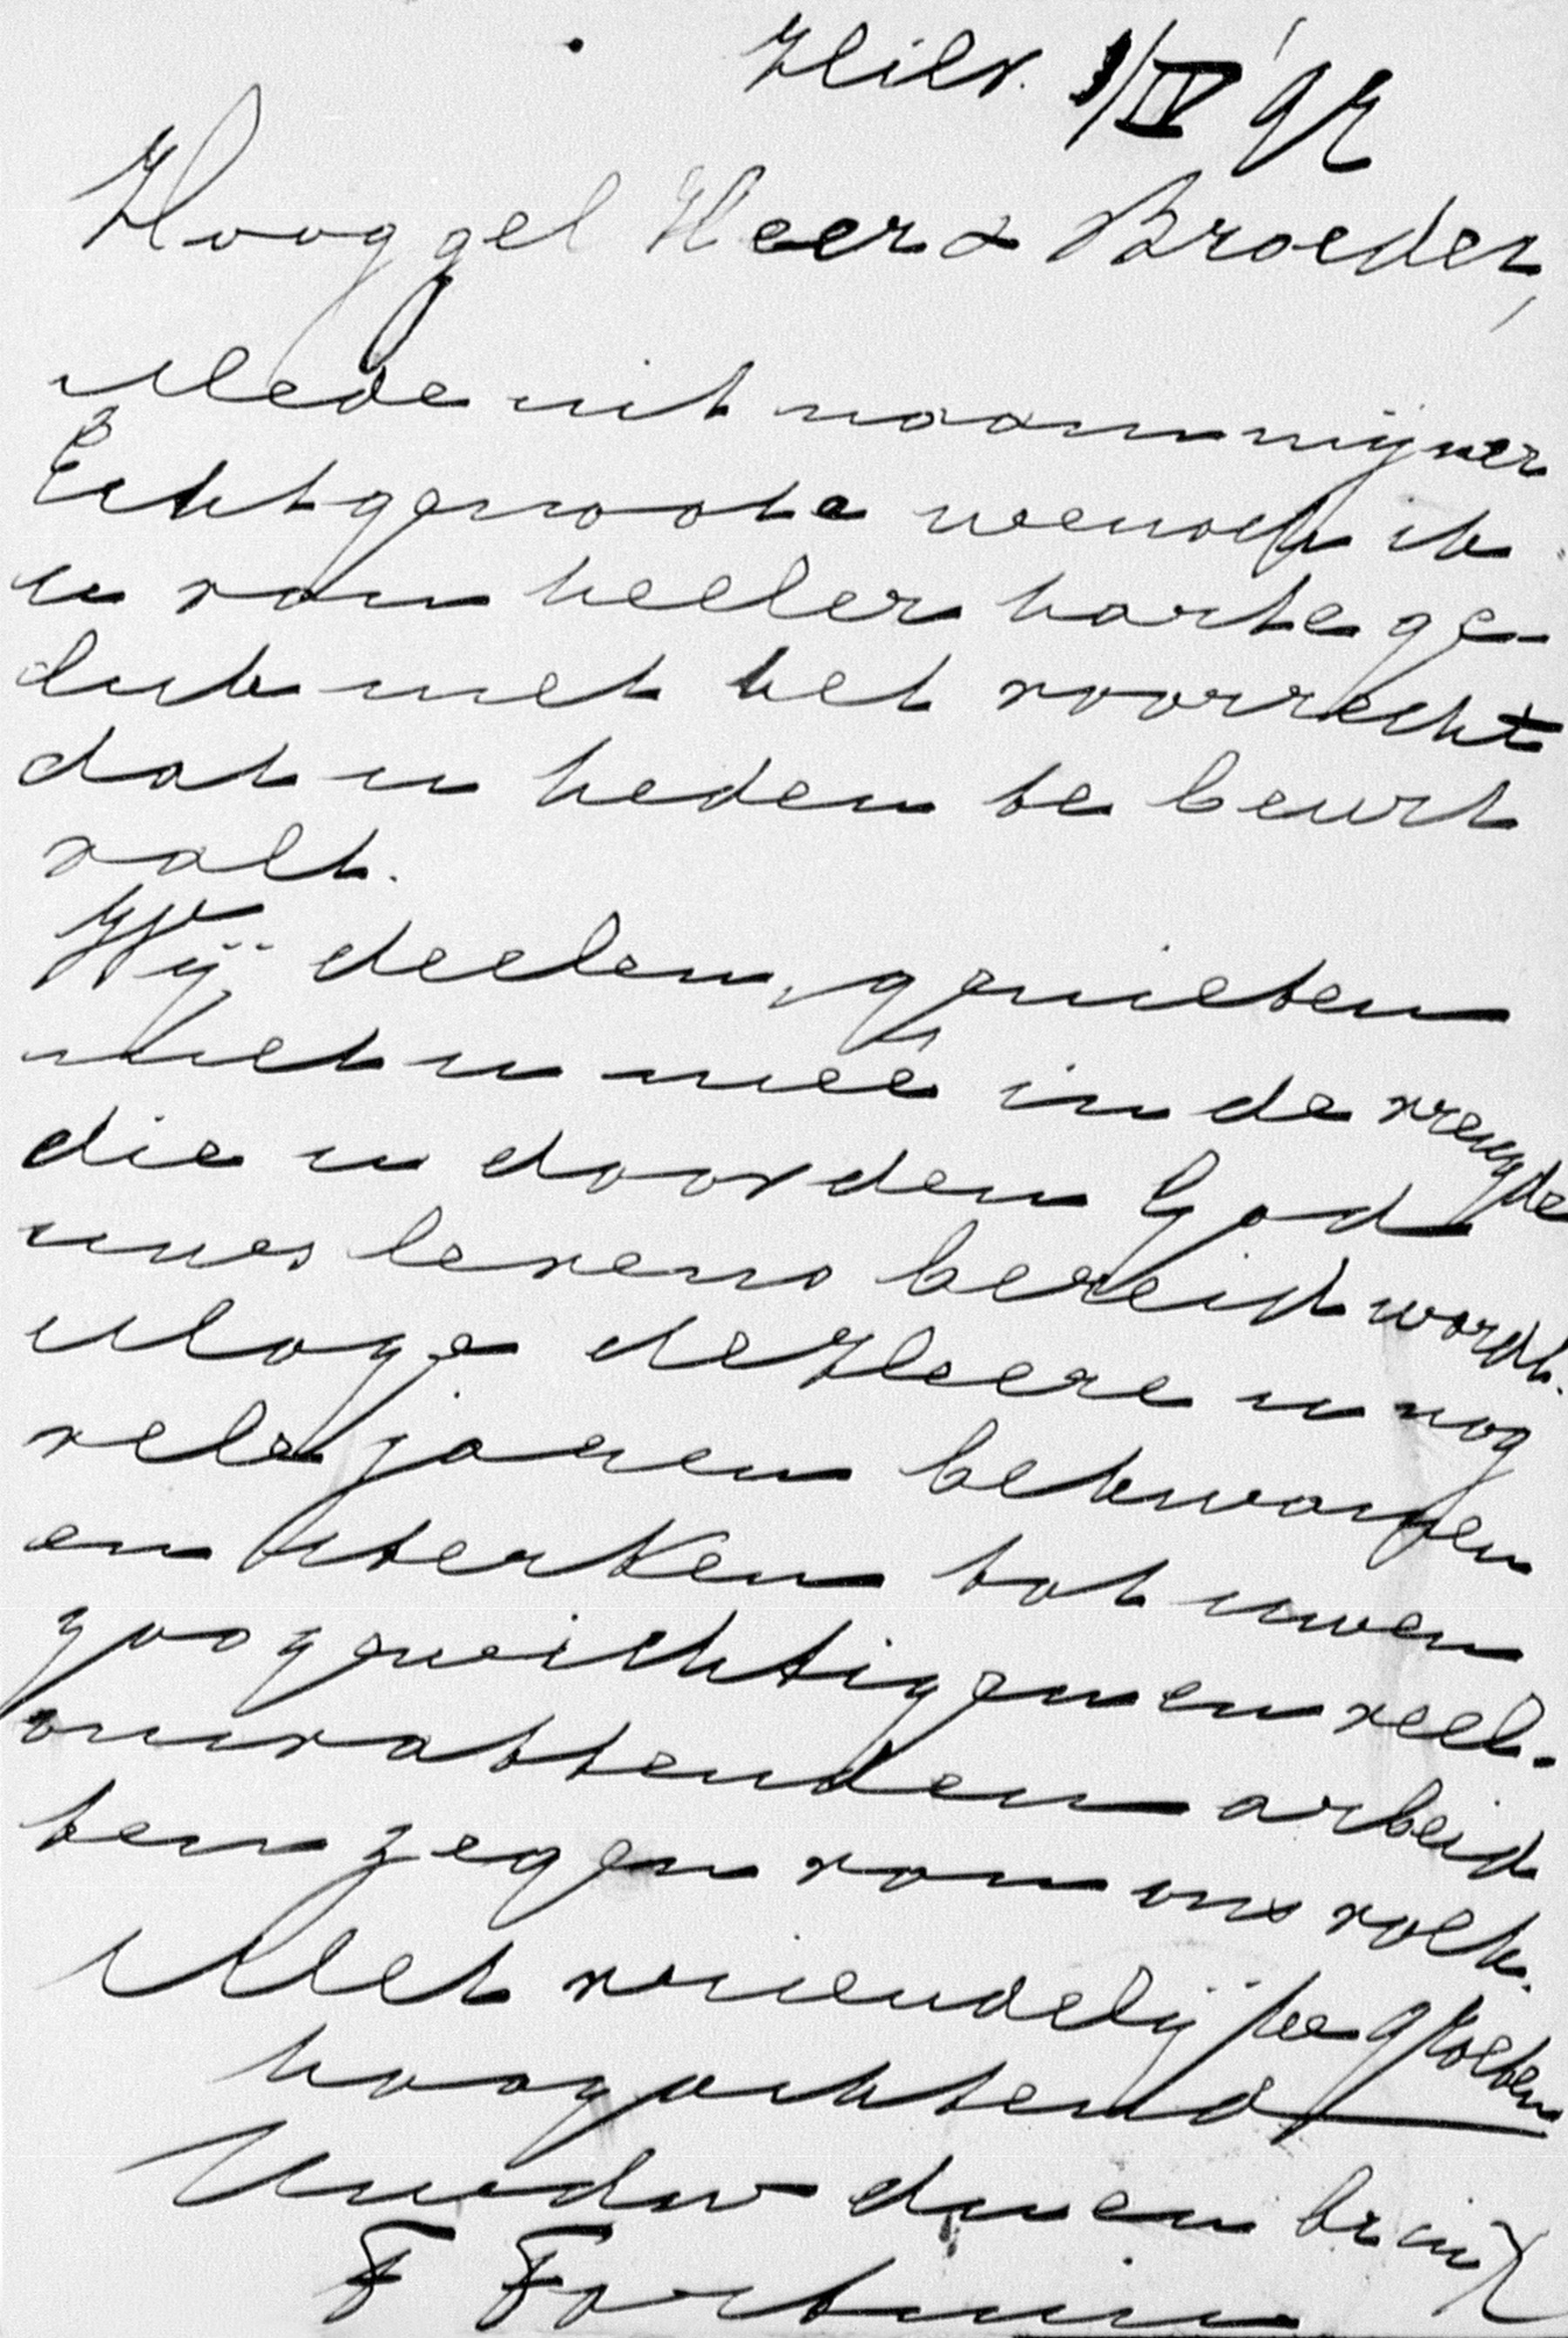 Hilv. 1/IV '97
Hooggel Heer & Broeder,
Mede uit naam mijner
Echtgenoote wensch ik
u van heeler harte ge-
luk met het voorrecht
dat u heden te beurt
valt.
Wij deelen, genieten
met u meê in de vreugde
die u door den God
uwes levens bereid wordt.
Moge de Heere u nog
vele jaren bekwamen
en sterken tot uwen
zoo gewichtigen en veel-
omvattenden arbeid
ten zegen van ons volk.
Met vriendelijke groeten
hoogachtend
Uwdw dn en br in X
F Fortuin